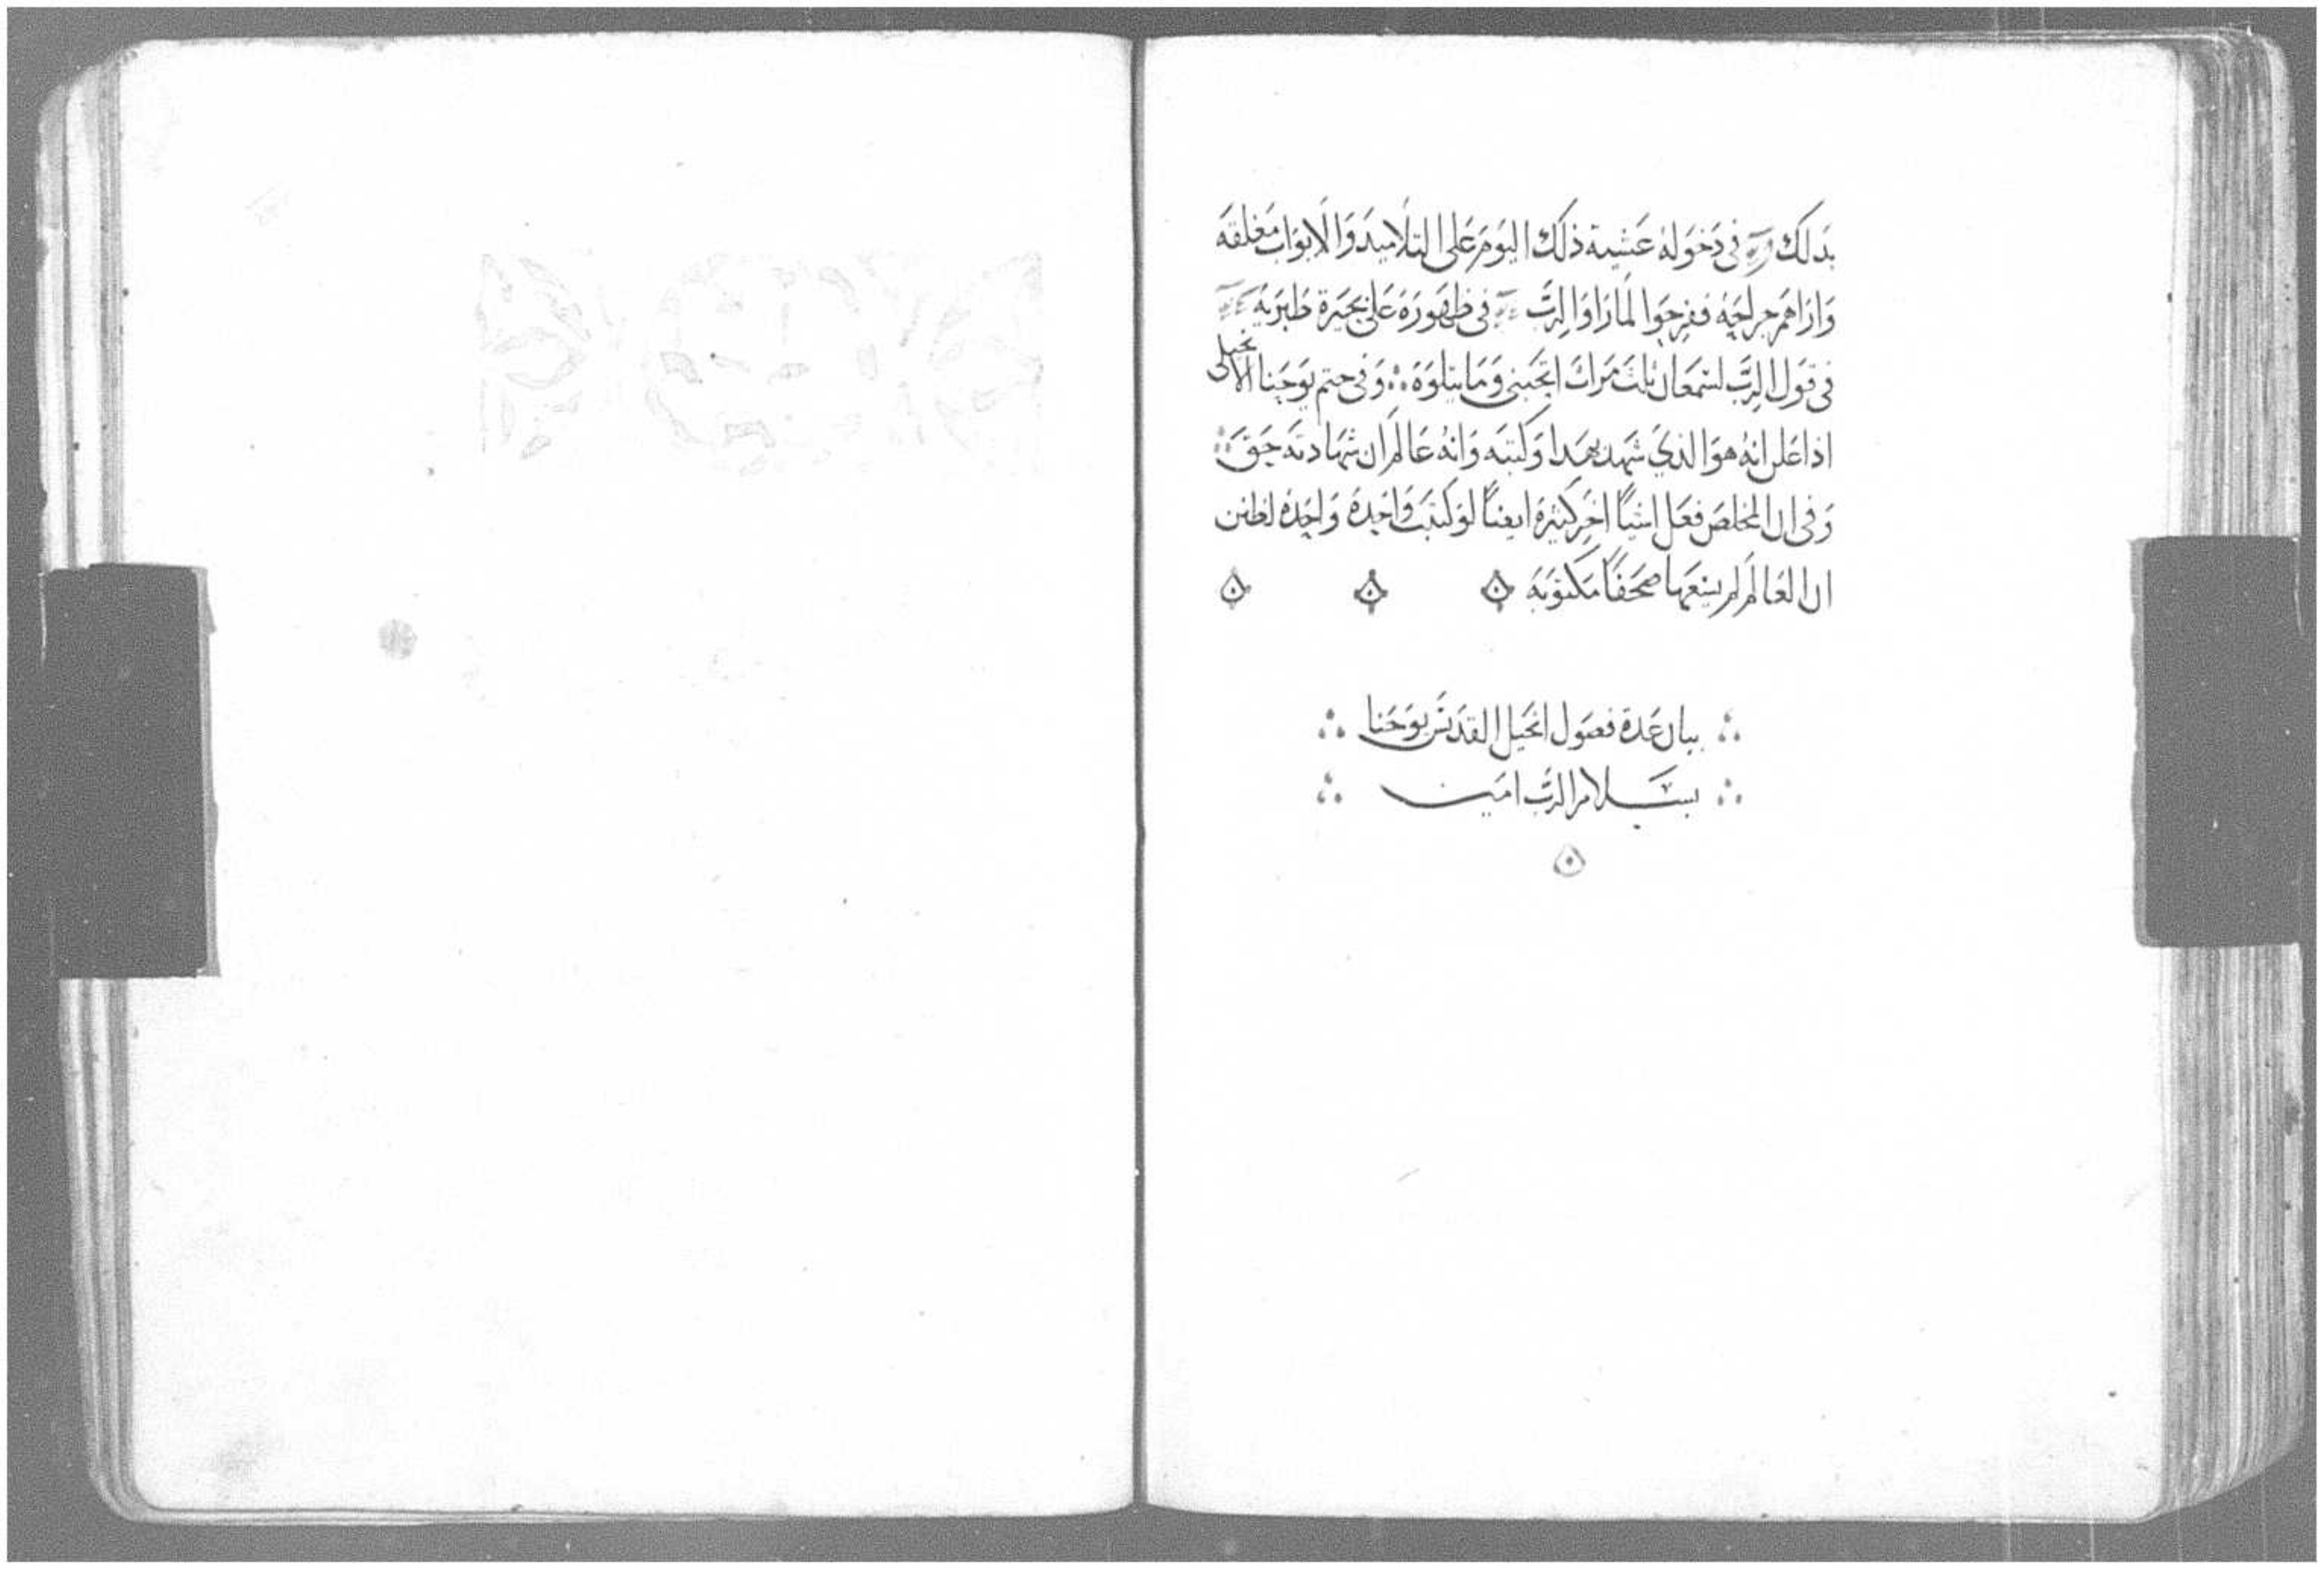 بدلك في دخوله عشية ذلك اليوم على التلاميد والابواب مغلقه
واراهم جراحه ففرحوا لما راوا الرب في ظهوره على بحيرة طبريه
في قول الرب لسمعان ثلث مرات اتحبني وما يتلوه ∴ وفي ختم يوحنا الانجيلي
اذا علن انه هو الذي شهد بهدا وكتبه وانه عالم ان شهادته حق ∴
وفي ان المخلص فعل اشيآ اخر كثيرة ايضاً لو كتبت واحده واحده لظنن
ان العالم لم يسعها صحفاً مكتوبه
∴ بيان عدة فصول انجيل القديس يوحنا ∴
∴ بسلام الرب امين ∴